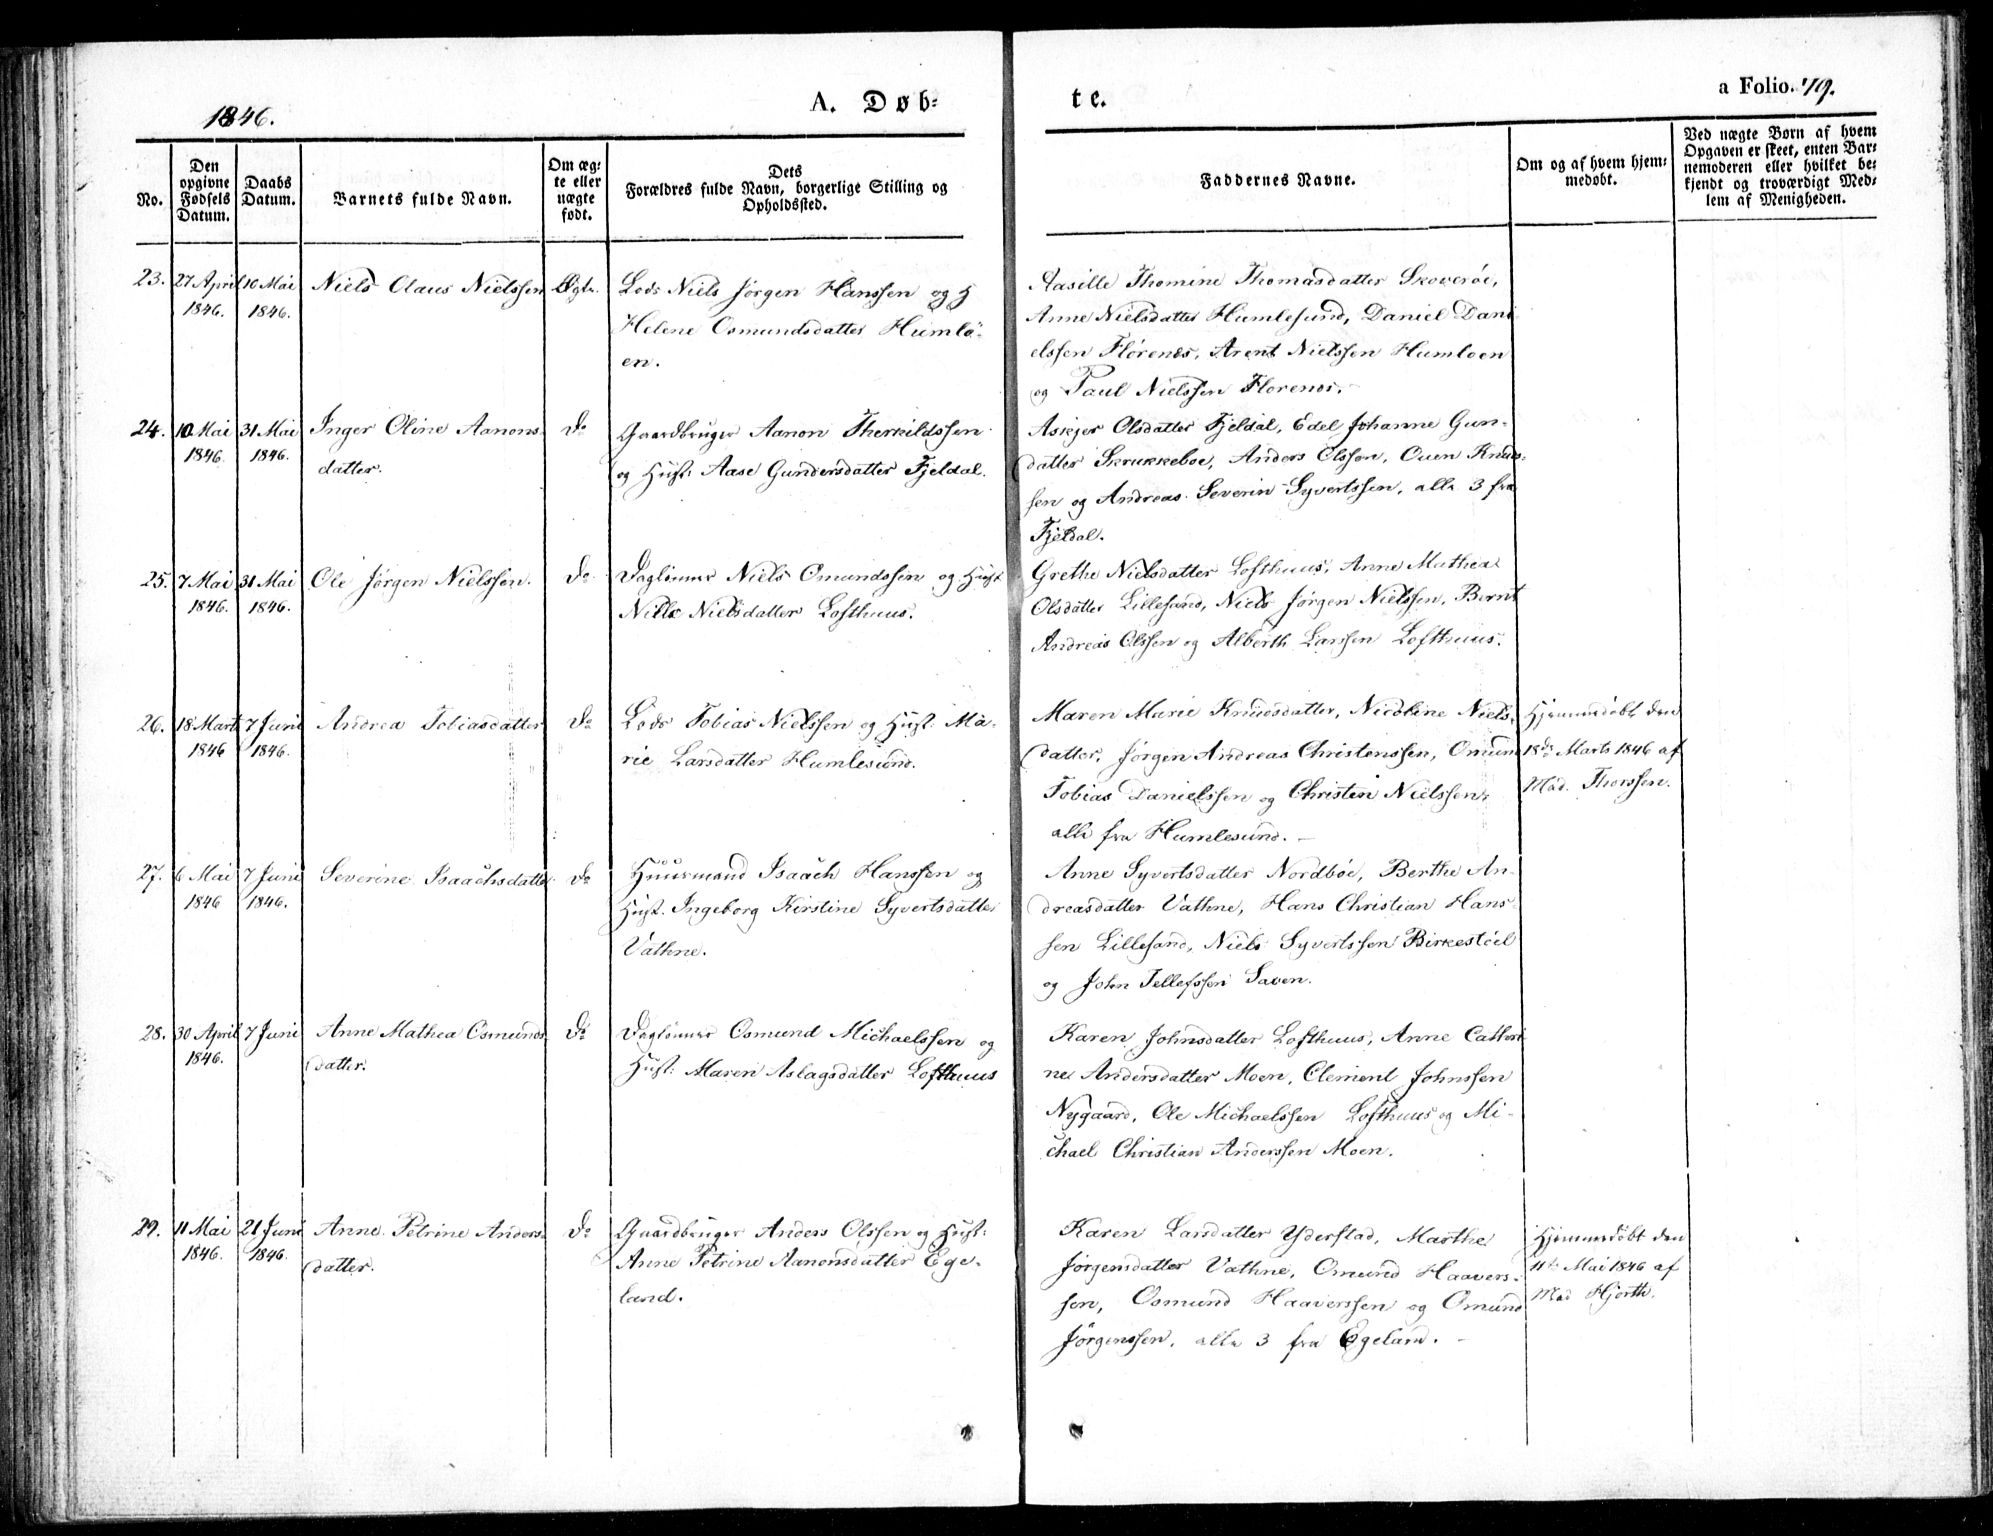 1846.
A. Døb-
te.
a Folio. 79.
No.
Den
opgivne
Fødsels
Datum.
Daabs
Datum.
Barnets fulde Navn.
Om æg-
te eller
uægte
født.
Dets
Forældres fulde Navn, borgerlige Stilling og
Opholdssted.
Faddernes Navne.
Om og af hvem hjem-
medøbt.
Ved uægte Børn af hvem
Opgaven er skeet, enten Bar-
nemoderen eller hvilket be-
kjendt og troværdigt Med-
lem af Menigheden.
23. 27 April 10 Mai Niels Claus Nielssen Ægte. Lods Niels Jørgen Hanssen og H
1846. 1846.
Helene Osmundsdatter Humlö-
en.
Aasille Thomine Thomasdatter Skoverøe,
Anne Nielsdatter Humlesund, Daniel Dani
elssen Flørenes, Arent Nielssen Humloen
og Paul Nielssen Florenes.
24. 10 Mai 31 Mai Inger Oline Aanons- Do Gaardbruger Aanon Therkildssen
1846. 1846. datter.
og Hust: Aase Gundersdatter Fjeldal.
Askjer Olsdatter Fjeldal, Edel Johanne Gun-
datter Skrukkeboe, Anders Olssen, Ouen Knud-
sen og Andreas Severin Syvertssen, alle 3 fra
Fjeldal.
25. 7 Mai 31 Mai Ole Jørgen Nielssen. Do Daglønner Niels Omundssen og Hust
1846. 1846.
Nille Nielsdatter Lofthuus.
Grethe Nielsdatter Lofthuus, Anne Mathea
Olsdatter Lillesand, Niels Jørgen Nielssen, Bernt
Andreas Olssen og Alberth Larssen Lofthuus.
26. 18 Marts 7 Juni Andrea Tobiasdatter Do Lods Tobias Nielssen og Hust. Ma-
1846 1846.
rie Larsdatter Humlesund.
Maren Marie Knudsdatter, Nicoline Niels-
datter, Jørgen Andreas Christenssen, Omund
Tobias Danielssen og Christen Nielssen,
alle fra Humlesund. —
Hjemmedøbt den
18de Marts 1846 af
Mad. Thorssen.
27. 6 Mai 7 Juni Severine Isaachsdatter Do Huusmand Isaach Hanssen og
1846 1846.
Hust. Ingeborg Kirstine Syvertsdatter
Vathne.
Anne Syvertsdatter Nordbøe, Berthe An-
dreasdatter Vathne, Hans Christian Hans-
sen Lillesand, Niels Syvertssen Birkestöel
og John Tellefssen Saven.
28. 30 April 7 Juni Anne Mathea Osmunds- Do Daglønner Osmund Michaelssen og
1846. datter.
Hust: Maren Aslagsdatter Lofthuus
Karen Johnsdatter Lofthuus, Anne Cathri
ne Andersdatter Moen, Clement Johnssen
Nygaard, Ole Michaelssen Lofthuus og Mi-
chael Christian Anderssen Moen.
29. 11 Mai 21 Juni Anne Petrine Anders- Do Gaardbruger Anders Olssen og Hust:
1846. 1846. datter.
Anne Petrine Aanonsdatter Ege-
land.
Karen Larsdatter Yderstad, Marthe
Jørgensdatter Vathne, Omund Haavers-
sen, Osmund Haaverssen og Omund
Jørgenssen, alle 3 fra Egeland. —
Hjemmedøbt den
11te Mai 1846 af
Mad Hjorth.